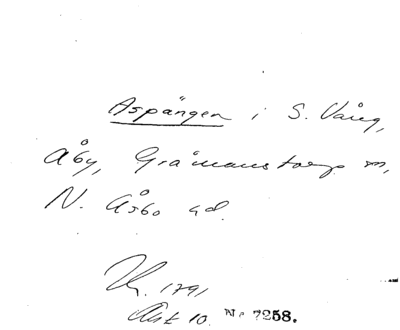 Aspängen i S. Vång,
Åby, Gråmanstorp sn,
N. Åsbo hd.
1791
Akt 10. No 7258.